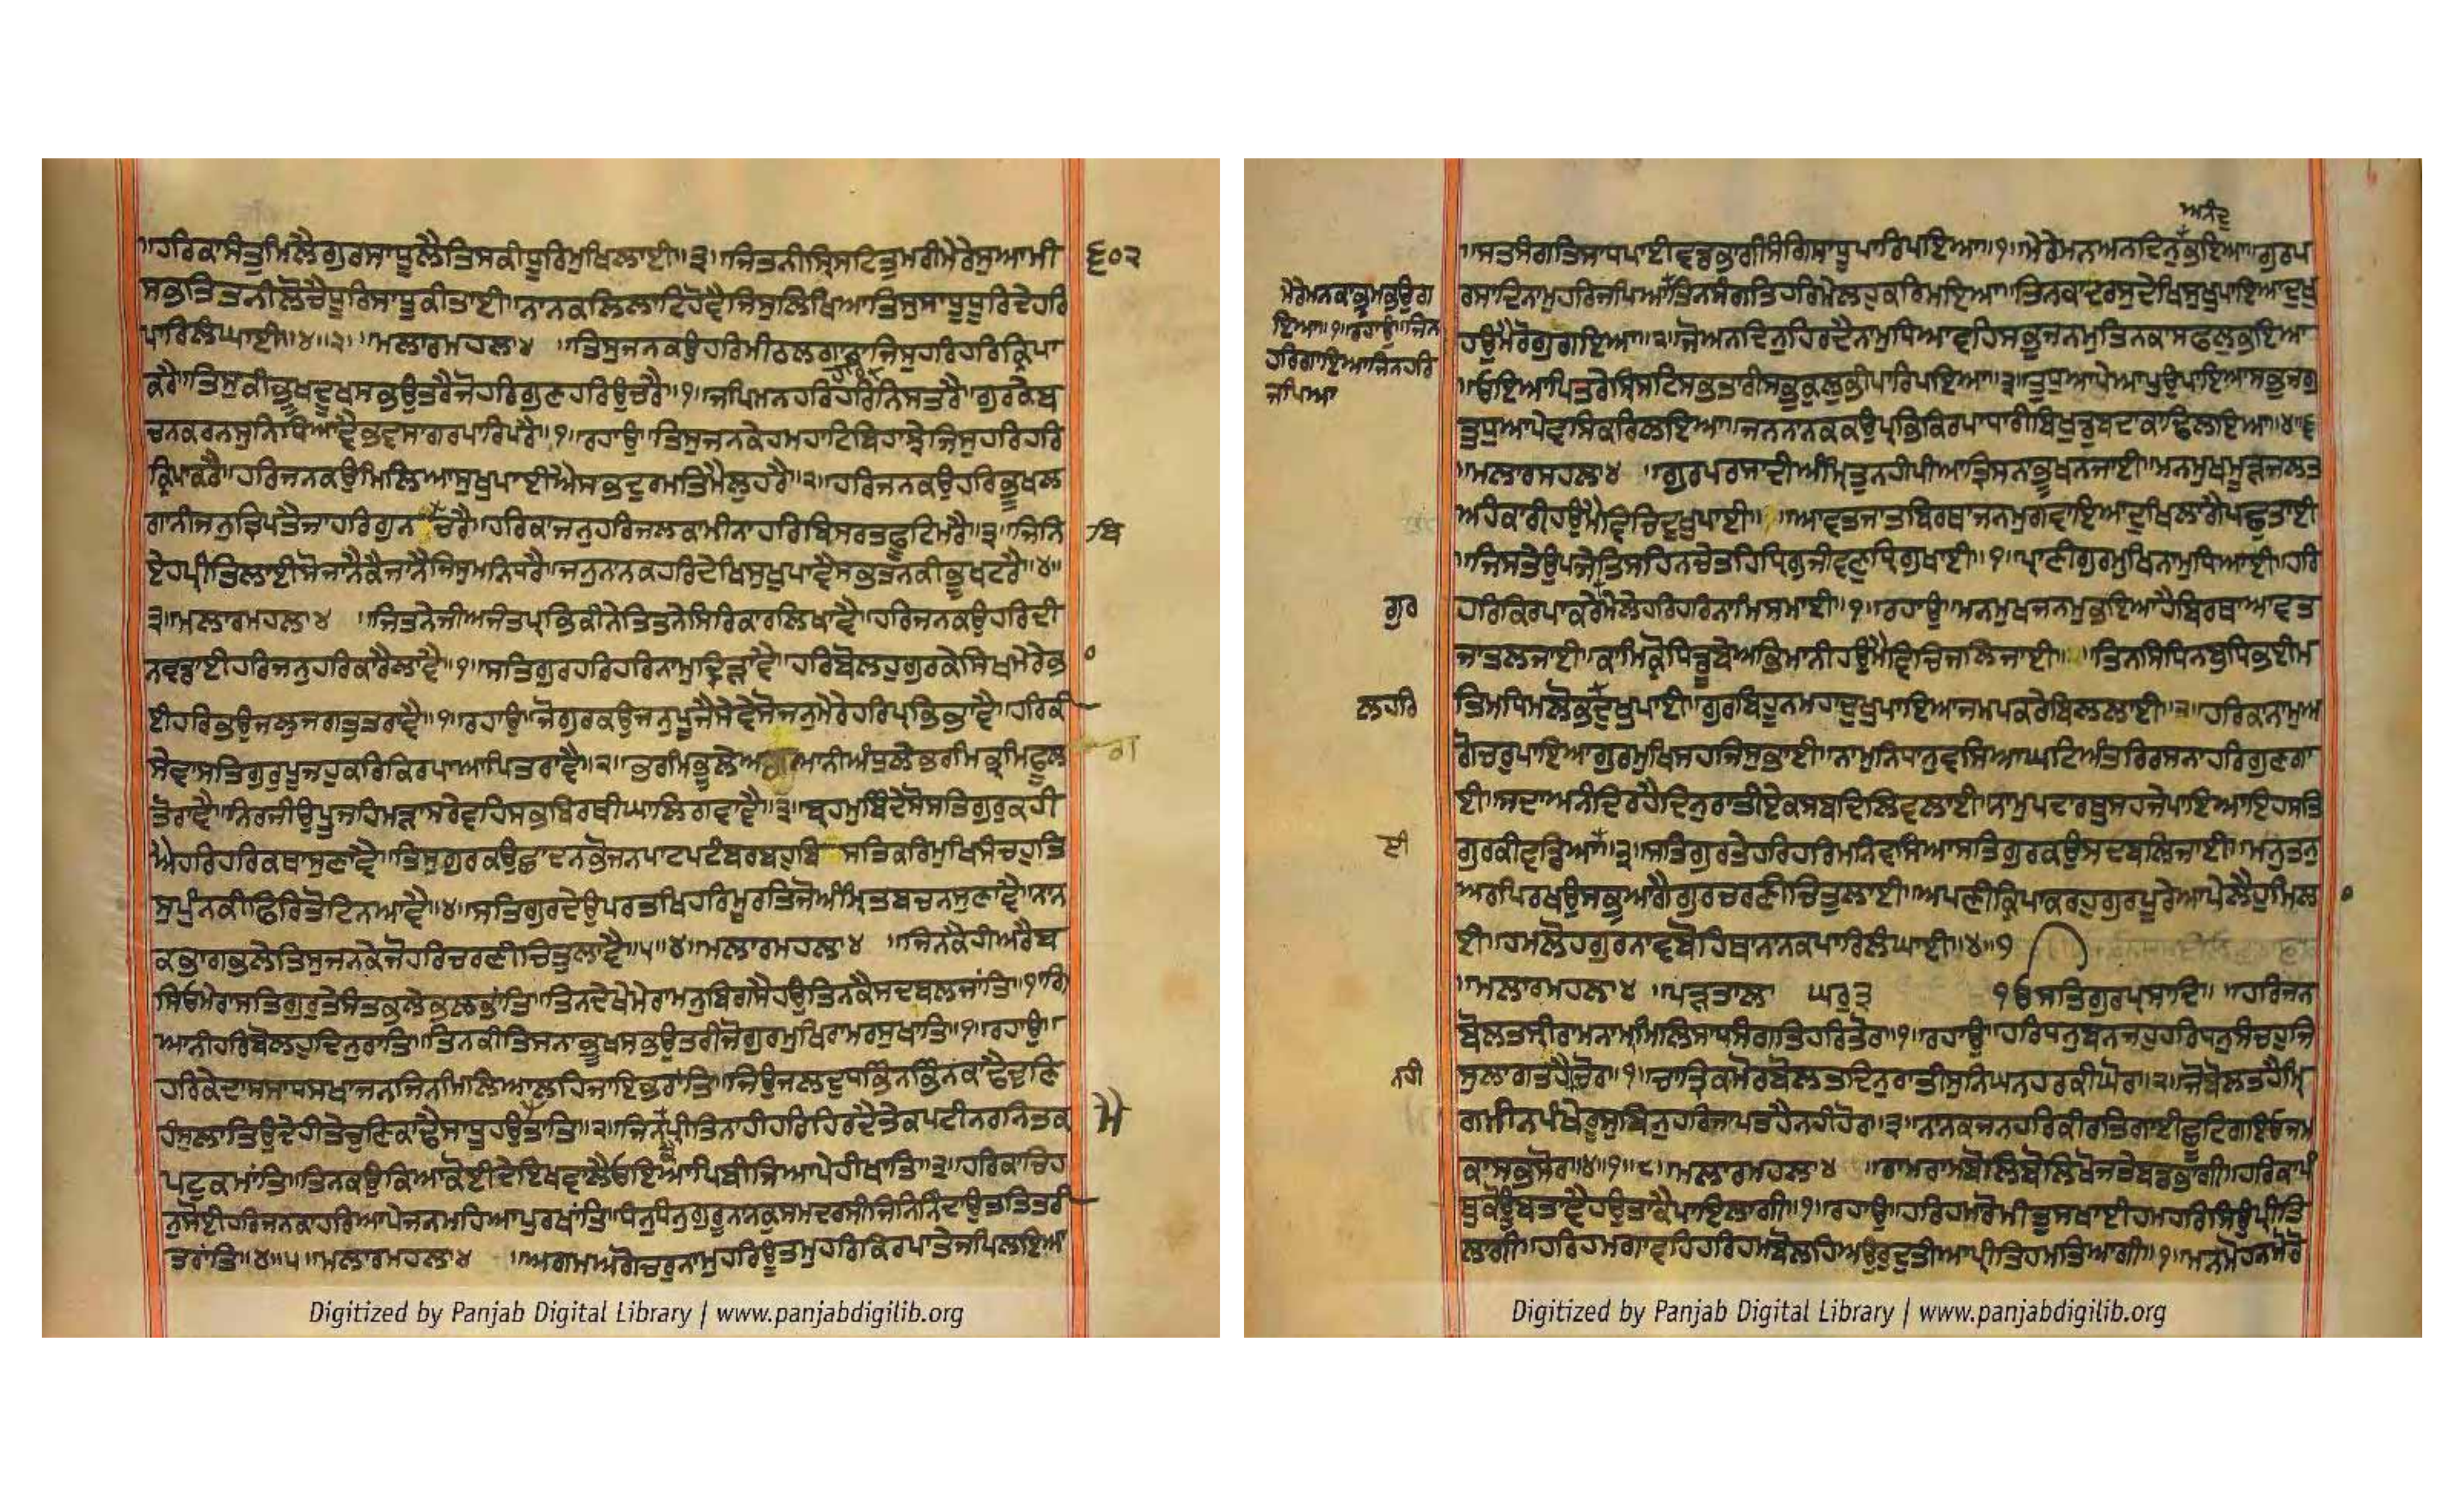 ॥ਹਰਿਕਾਸੰਤੁਮਿਲੈਗੁਰਸਾਧੂਲੈਤਿਸਕੀਧੂਰਿਮੁਖਿਲਾਈ॥੩॥ਜਿਤਨੀਸ੍ਰਿਸਟਿਤੁਮਰੀਮੇਰੇਸੁਆਮੀ
੬੦੨
ਸਭਤਿਤਨੀਲੋਚੈਧੂਰਿਸਾਧੂਕੀਤਾਈ॥ਨਾਨਕਲਿਲਾਟਿਹੋਵੈਜਿਸੁਲਿਖਿਆਤਿਸੁਸਾਧੂਧੂਰਿਦੇਹਰਿ
ਪਾਰਿਲੰਘਾਈ॥੪॥੨॥ਮਲਾਰਮਹਲਾ੪ ॥ਤਿਸੁਜਨਕਉਹਰਿਮੀਠਲਗਾਨਾਜਿਸੁਹਰਿਹਰਿਕ੍ਰਿਪਾ
ਕਰੈ॥ਤਿਸੁਕੀਭੂਖਦੂਖਸਭਉਤਰੈਜੋਹਰਿਗੁਣਹਰਿਉਚਰੈ॥੧॥ਜਪਿਮਨਹਰਿਹਰਿਨਿਸਤਰੈ॥ਗੁਰਕੇਬ
ਚਨਕਰਨਸੁਨਿਧਿਆਵੈਭਵਸਾਗਰਪਾਰਿਪਰੈ॥੧॥ਰਹਾਉ॥ਤਿਸੁਜਨਕੇਹਮਹਾਟਿਬਿਹਾਝੇਜਿਸੁਹਰਿਹਰਿ
ਕ੍ਰਿਪਾਕਰੈ॥ਹਰਿਜਨਕਉਮਿਲਿਆਸੁਖੁਪਾਈਐਸਭਦੁਰਮਤਿਮੈਲੁਹਰੈ॥੨॥ਹਰਿਜਨਕਉਹਰਿਭੂਖਲ
ਗਾਨੀਜਨੁਤ੍ਰਿਪਤੈਜਾਹਰਿਗੁਨ ਚਰੈ॥ਹਰਿਕਾਜਨੁਹਰਿਜਲਕਾਮੀਨਾਹਰਿਬਿਸਰਤਫੂਟਿਮਰੈ॥੩॥ਜਿਨਿ
ਬਿ
ਏਹਪ੍ਰੀਤਿਲਾਈਸੋਜਾਨੈਕੈਜਾਨੈਜਿਸੁਮਨਿਧਰੈ॥ਜਨੁਨਾਨਕਹਰਿਦੇਖਿਸੁਖੁਪਾਵੈਸਭਤਨਕੀਭੂਖਟਰੈ॥੪॥
੩॥ਮਲਾਰਮਹਲਾ੪ ॥ਜਿਤਨੇਜੀਅਜੰਤਪ੍ਰਭਿਕੀਨੇਤਿਤਨੇਸਿਰਿਕਾਰਲਿਖਾਵੈ॥ਹਰਿਜਨਕਉਹਰਿਦੀ
ਨਵਡਾਈਹਰਿਜਨੁਹਰਿਕਾਰੈਲਾਵੈ॥੧॥ਸਤਿਗੁਰਹਰਿਹਰਿਨਾਮੁਦ੍ਰਿੜਾਵੈ॥ਹਰਿਬੋਲਹੁਗੁਰਕੇਸਿਖਮੇਰੇਭ
ਈਹਰਿਭਉਜਲੁਜਗਤੁਤਰਾਵੈ॥੧॥ਰਹਾਉ॥ਜੋਗੁਰਕਉਜਨੁਪੂਜੈਸੇਵੇਸੋਜਨੁਮੇਰੇਹਰਿਪ੍ਰਭਿਭਾਵੈ॥ਹਰਿਕੀ
ਸੇਵਾਸਤਿਗੁਰੁਪੂਜਹੁਕਰਿਕਿਰਪਾਆਪਿਤਰਾਵੈ॥੨॥ਭਰਮਿਭੂਲੇਅ ਆਨੀਅੰਧੁਲੇਭਰਮਿਭ੍ਰਮਿਫੂਲ
ਗ
ਤੋਰਾਵੈ॥ਨਿਰਜੀਉਪੂਜਹਿਮੜਾਸਰੇਵਹਿਸਭਬਿਰਥੀਘਾਲਿਗਵਾਵੈ॥੩॥ਬ੍ਰਹਮੁਬਿੰਦੇਸੋਸਤਿਗੁਰੁਕਹੀ
ਐਹਰਿਹਰਿਕਥਾਸੁਣਾਵੈ॥ਤਿਸੁਗੁਰਕਉਛਾਦਨਭੋਜਨਪਾਟਪਟੰਬਰਬਹੁਬਿ ਸਤਿਕਰਿਮੁਖਿਸੰਚਹੁਤਿ
ਸੁਪੁੰਨਕੀਫਿਰਿਤੋਟਿਨਆਵੈ॥੪॥ਸਤਿਗੁਰਦੇਉਪਰਤਖਿਹਰਿਮੂਰਤਿਜੋਅੰਮ੍ਰਿਤਬਚਨਸੁਣਾਵੈ॥ਨਾਨ
ਕਭਾਗਭਲੇਤਿਸੁਜਨਕੇਜੋਹਰਿਚਰਣੀਚਿਤੁਲਾਵੈ॥੫॥੪॥ਮਲਾਰਮਹਲਾ੪ ॥ਜਿਨਕੈਹੀਅਰੈਬ
ਸਿਓਮੇਰਾਸਤਿਗੁਰੁਤੇਸੰਤਭਲੇਭਲਭਾਂਤਿ॥ਤਿਨਦੇਖੇਮੇਰਾਮਨੁਬਿਗਸੈਹਉਤਿਨਕੈਸਦਬਲਜਾਂਤਿ॥੧॥ਗਿ
ਆਨੀਹਰਿਬੋਲਹੁਦਿਨੁਰਾਤਿ॥ਤਿਨਕੀਤ੍ਰਿਸਨਾਭੂਖਸਭਉਤਰੀਜੋਗੁਰਮੁਖਿਰਾਮਰਸੁਖਾਤਿ॥੧॥ਰਹਾਉ॥
ਹਰਿਕੇਦਾਸਸਾਧਸਖਾਜਨਜਿਨਮਿਲਿਆਲਹਿਜਾਇਭਰਾਂਤਿ॥ਜਿਉਜਲਦੁਧਭਿੰਨਭਿੰਨਕਾਢੈਚੁਣਿ
ਹੰਸੁਲਾਤਿਉਦੇਹੀਤੇਚੁਣਿਕਾਢੈਸਾਧੂਹਉਤਾਤਿ॥੨॥ਜਿਨਪ੍ਰੀਤਿਨਾਹੀਹਰਿਹਿਰਦੈਤੇਕਪਟੀਨਰਨਿਤਕ
ਪਟੁਕਮਾਂਤਿ॥ਤਿਨਕਉਕਿਆਕੋਈਦੇਇਖਵਾਲੈਓਇਆਪਿਬੀਜਿਆਪੇਹੀਖਾਂਤਿ॥੩॥ਹਰਿਕਾਚਿਹ
ਨੁਸੋਈਹਰਿਜਨਕਾਹਰਿਆਪੇਜਨਮਹਿਆਪੁਰਖਾਂਤਿ॥ਧਨੁਧਨੁਗੁਰੂਨਾਨਕੁਸਮਦਰਸੀਜਿਨਿਨਿੰਦਾਉਸਤਤਿਤਰੀ
ਤਰਾਂਤਿ॥੪॥੫॥ਮਲਾਰਮਹਲਾ੪ ॥ਅਗਮਅਗੋਚਰੁਨਾਮੁਹਰਿਊਤਮੁਹਰਿਕਿਰਪਾਤੇਜਪਿਲਇਆ
Digitized by Panjab Digital Library | www.panjabdigilib.org
ਅਨੰਦੁ
॥ਸਤਸੰਗਤਿਸਾਧਪਾਈਵਡਭਾਗੀਸੰਗਿਸਾਧੂਪਾਰਿਪਇਆ॥੧॥ਮੇਰੇਮਨਅਨਦਿਨੁਭਇਆ॥ਗੁਰਪ
ਮੇਰੇਮਨਕਾਭ੍ਰਮਭਉਗ
ਇਆ॥੧॥ਰਹਾਉ॥ਜਿਨ
ਹਰਿਗਾਇਆਜਿਨਹਰਿ
ਜਪਿਆ
ਰਸਾਦਿਨਾਮੁਹਰਿਜਪਿਆਤਿਨਸੰਗਤਿਹਰਿਮੇਲਹੁਕਰਿਮਇਆ॥ਤਿਨਕਾਦਰਸੁਦੇਖਿਸੁਖੁਪਾਇਆਦੁਖੁ
ਹਉਮੈਰੋਗੁਗਇਆ॥੨॥ਜੋਅਨਦਿਨੁਹਿਰਦੈਨਾਮੁਧਿਆਵਹਿਸਭੁਜਨਮੁਤਿਨਕਾਸਫਲੁਭਇਆ
॥ਓਇਆਪਿਤਰੇਸ੍ਰਿਸਟਿਸਭਤਾਰੀਸਭੁਕੁਲੁਭੀਪਾਰਿਪਇਆ॥੩॥ਤੁਧੁਆਪੇਆਪਿਉਪਾਇਆਸਭੁਜਗੁ
ਤੁਧੁਆਪੇਵਸਿਕਰਿਲਇਆ॥ਜਨਨਾਨਕਕਉਪ੍ਰਭਿਕਿਰਪਾਧਾਰੀਬਿਖੁਡੁਬਦਾਕਾਢਿਲਇਆ॥੪॥੬
॥ਮਲਾਰਮਹਲਾ੪ ॥ਗੁਰਪਰਸਾਦੀਅੰਮ੍ਰਿਤੁਨਹੀਪੀਆਤ੍ਰਿਸਨਾਭੂਖਨਜਾਈ॥ਮਨਮੁਖਮੂੜਜਲਤ
ਅਹੰਕਾਰੀਹਉਮੈਵਿਚਿਦੁਖੁਪਾਈ॥ ॥ਆਵਤਜਾਤਬਿਰਥਾਜਨਮੁਗਵਾਇਆਦੁਖਿਲਾਗੈਪਛੁਤਾਈ
॥ਜਿਸਤੇਉਪਜੇਤਿਸਹਿਨਚੇਤਹਿਧ੍ਰਿਗੁਜੀਵਣੁਧ੍ਰਿਗੁਖਾਈ॥੧॥ਪ੍ਰਾਣੀਗੁਰਮੁਖਿਨਾਮੁਧਿਆਈ॥ਹਰਿ
ਗੁਰ
ਹਰਿਕਿਰਪਾਕਰੇਮੇਲੇਹਰਿਹਰਿਨਾਮਿਸਮਾਈ॥੧॥ਰਹਾਉ॥ਮਨਮੁਖਜਨਮੁਭਇਆਹੈਬਿਰਥਾਆਵਤ
ਜਾਤਲਜਾਈ॥ਕਾਮਿਕ੍ਰੋਧਿਡੂਬੇਅਭਿਮਾਨੀਹਉਮੈਵਿਚਿਜਲਿਜਾਈ॥ ॥ਤਿਨਸਿਧਿਨਬੁਧਿਭਈਮ
ਲਹਰਿ
ਤਿਮਧਿਮਲੋਭਦੁਖੁਪਾਈ॥ਗੁਰਬਿਹੂਨਮਹਾਦੁਖੁਪਾਇਆਜਮਪਕਰੇਬਿਲਲਾਈ॥੨॥ਹਰਿਕਾਨਾਮੁਅ
ਗੋਚਰੁਪਾਇਆਗੁਰਮੁਖਿਸਹਜਿਸੁਭਾਈ॥ਨਾਮੁਨਿਧਾਨੁਵਸਿਆਘਟਿਅੰਤਰਿਰਸਨਾਹਰਿਗੁਣਗਾ
ਈ॥ਸਦਾਅਨੰਦਿਰਹੈਦਿਨੁਰਾਤੀਏਕਸਬਦਿਲਿਵਲਾਈ॥ਨਾਮੁਪਦਾਰਥੁਸਹਜੇਪਾਇਆਇਹਸਤਿ
ਈ
ਗੁਰਕੀਵਡਿਆ ॥੩॥ਸਤਿਗੁਰਤੇਹਰਿਹਰਿਮਨਿਵਸਿਆਸਤਿਗੁਰਕਉਸਦਬਲਿਜਾਈ॥ਮਨੁਤਨੁ
ਅਰਪਿਰਖਉਸਭੁਆਗੈਗੁਰਚਰਣੀਚਿਤੁਲਾਈ॥ਅਪਣੀਕ੍ਰਿਪਾਕਰਹੁਗੁਰਪੂਰੇਆਪੇਲੈਹੁਮਿਲ
ਈ॥ਹਮਲੋਹਗੁਰਨਾਵਬੋਹਿਥਾਨਾਨਕਪਾਰਿਲੰਘਾਈ॥੪॥੭
॥ਮਲਾਰਮਹਲਾ੪ ॥ਪੜਤਾਲ ਘਰੁ੩ ੧ਓਸਤਿਗੁਰਪ੍ਰਸਾਦਿ॥ ॥ਹਰਿਜਨ
ਬੋਲਤਸ੍ਰੀਰਾਮਨਾਮਾਮਿਲਿਸਾਧਸੰਗਤਿਹਰਿਤੋਰ॥੧॥ਰਹਾਉ॥ਹਰਿਧਨੁਬਨਜਹੁਹਰਿਧਨੁਸੰਚਹੁਜਿ
ਨਹੀ
ਸੁਲਾਗਤਹੈਚੋਰ॥੧॥ਚਾਤ੍ਰਿਕਮੋਰਬੋਲਤਦਿਨੁਰਾਤੀਸੁਨਿਘਨਹਰਕੀਘੋਰ॥੨॥ਜੋਬੋਲਤਹੈਮ੍ਰਿ
ਗਮੀਨਪੰਖੇਰੂਸੁਬਿਨੁਹਰਿਜਾਪਤਹੈਨਹੀਹੋਰ॥੩॥ਨਾਨਕਜਨਹਰਿਕੀਰਤਿਗਾਈਛੂਟਿਗਇਓਜਮ
ਕਾਸਭਸੋਰ॥੪॥੧॥੮॥ਮਲਾਰਮਹਲਾ੪ ॥ਰਾਮਰਾਮਬੋਲਿਬੋਲਿਖੋਜਤੇਬਡਭਾਗੀ॥ਹਰਿਕਾਪੰ
ਥੁਕੋਊਬਤਾਵੈਹਉਤਾਕੈਪਾਇਲਾਗੀ॥੧॥ਰਹਾਉ॥ਹਰਿਹਮਾਰੋਮੀਤੁਸਖਾਈਹਮਹਰਿਸਿਉਪ੍ਰੀਤਿ
ਲਾਗੀ॥ਹਰਿਹਮਗਾਵਹਿਹਰਿਹਮਬੋਲਹਿਅਉਰੁਦੁਤੀਆਪ੍ਰੀਤਿਹਮਤਿਆਗੀ॥੧॥ਮਨਮੋਹਨਮੋਰੋ
Digitized by Panjab Digital Library | www.panjabdigilib.org